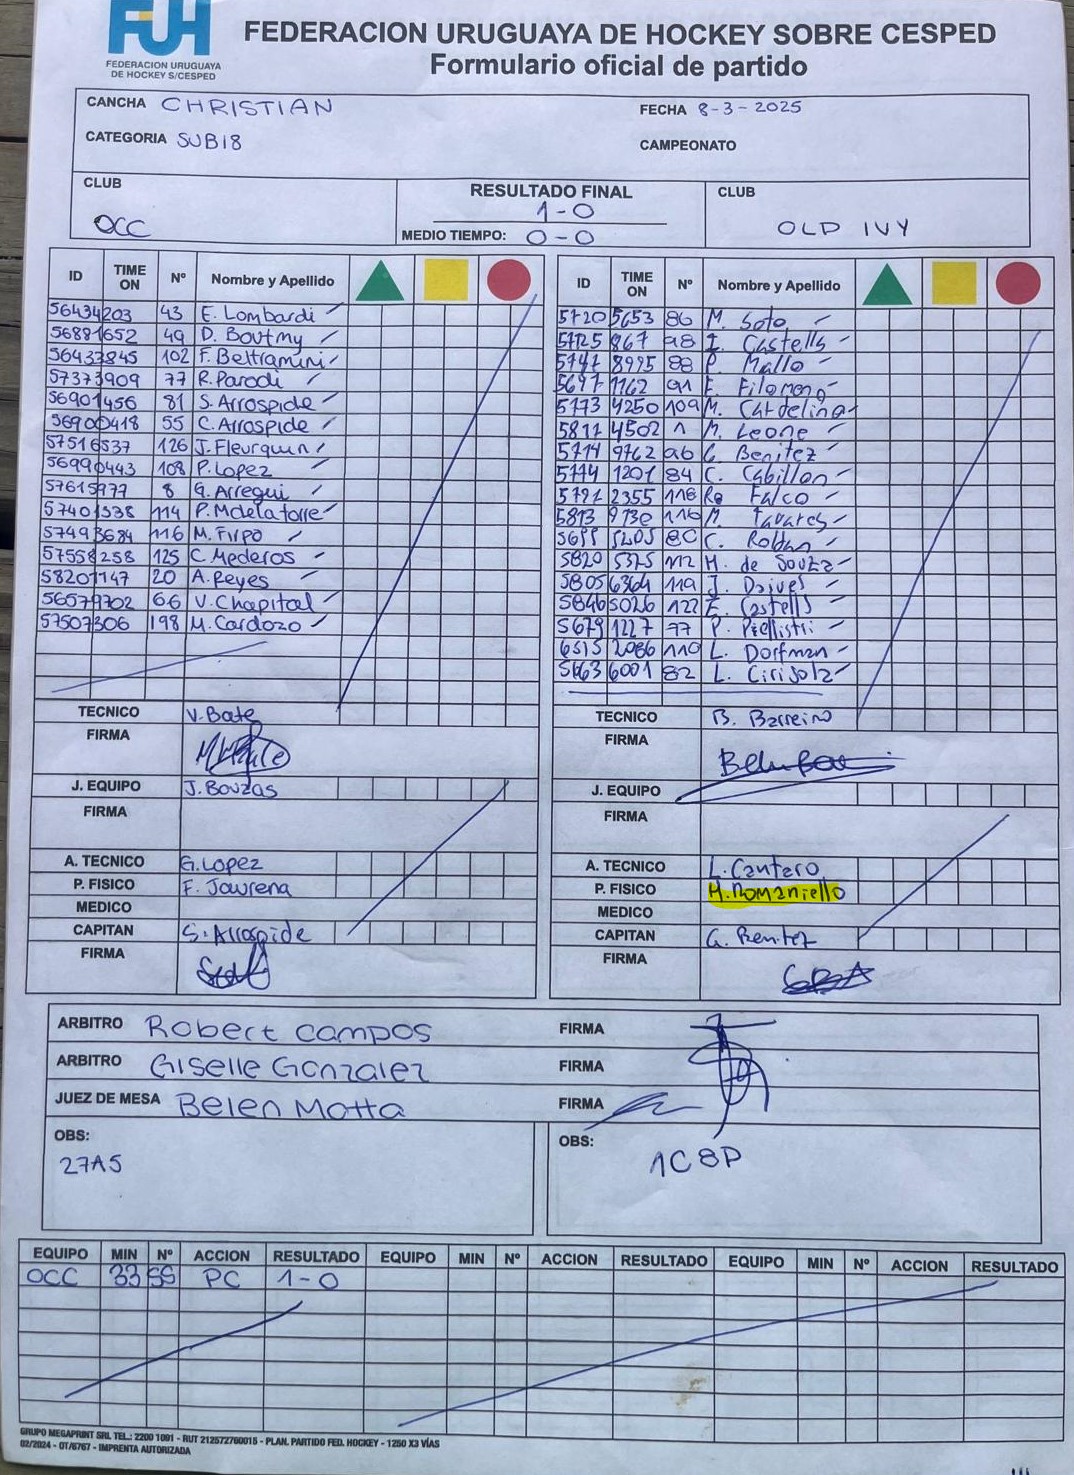 FUH
FEDERACION URUGUAYA
DE HOCKEY S/CESPED
FEDERACION URUGUAYA DE HOCKEY SOBRE CESPED
Formulario oficial de partido
CANCHA CHRISTIAN FECHA 8-3-2025
CATEGORIA SUB18 CAMPEONATO
CLUB OCC
RESULTADO FINAL 1-0
MEDIO TIEMPO: 0-0
CLUB OLD IVY
ID TIME ON Nº Nombre y Apellido
56434203 43 E. Lombardi
56881652 49 D. Boutmy
56437845 102 F. Beltramini
57373909 77 R. Parodi
56901456 81 S. Arrospide
56900418 55 C. Arrospide
57516537 126 J. Fleurquin
56990443 108 P. Lopez
57615977 8 G. Arregui
57401538 114 P. Mdelatorre
57493684 116 M. Firpo
57558258 125 C. Mederos
58201147 20 A. Reyes
56579702 66 V. Chapital
57507306 198 M. Cardozo
TECNICO V. Bate
FIRMA
J. EQUIPO J. Bouzas
FIRMA
A. TECNICO G. Lopez
P. FISICO F. Jaurena
MEDICO
CAPITAN S. Arrospide
FIRMA
ID TIME ON Nº Nombre y Apellido
57205653 86 M. Soto
98 Castells
88 P. Mallo
91 F. Filomeno
57734250 109 M. Cardelino
58114502 1 M. Leone
57149762 96 G. Benitez
57741201 84 C. Cabillon
2355 118 Falco
58139730 116 M. Tavares
80 C. Roldan
58205375 112 M. de Souza
58056364 119 J.
58465026 122 F. Castells
56791227 77 P. Piellistri
65152086 110 L. Dorfman
56636001 82 L. Cirisola
TECNICO B. Barreiro
FIRMA
J. EQUIPO
FIRMA
A. TECNICO L. Cantero
P. FISICO M. Romaniello
MEDICO
CAPITAN G. Benitez
FIRMA
ARBITRO Robert Campos FIRMA
ARBITRO Giselle Gonzalez FIRMA
JUEZ DE MESA Belen Motta FIRMA
OBS:
27A5
OBS:
1C8P
EQUIPO MIN Nº ACCION RESULTADO EQUIPO MIN Nº ACCION RESULTADO EQUIPO MIN Nº ACCION RESULTADO
OCC 33 55 PC 1-0
GRUPO MEGAPRINT SRL TEL.: 2200 1091 - RUT 212572760015 - PLAN. PARTIDO FED. HOCKEY - 1250 X3 VÍAS
02/2024 - OT/6767 - IMPRENTA AUTORIZADA